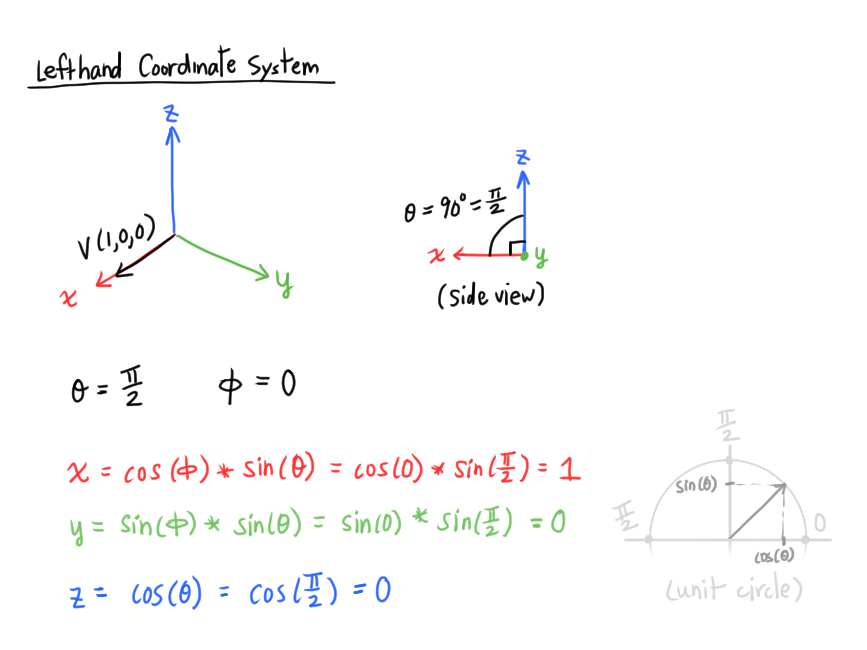 Lefthand Coordinate System
z
V(1,0,0)
x
y
z
θ = 90° = π/2
x
y
(side view)
θ = π/2 ϕ = 0
x = cos(ϕ) * sin(θ) = cos(0) * sin(π/2) = 1
y = sin(ϕ) * sin(θ) = sin(0) * sin(π/2) = 0
z = cos(θ) = cos(π/2) = 0
π/2
sin(θ)
π/2
0
cos(θ)
(unit circle)